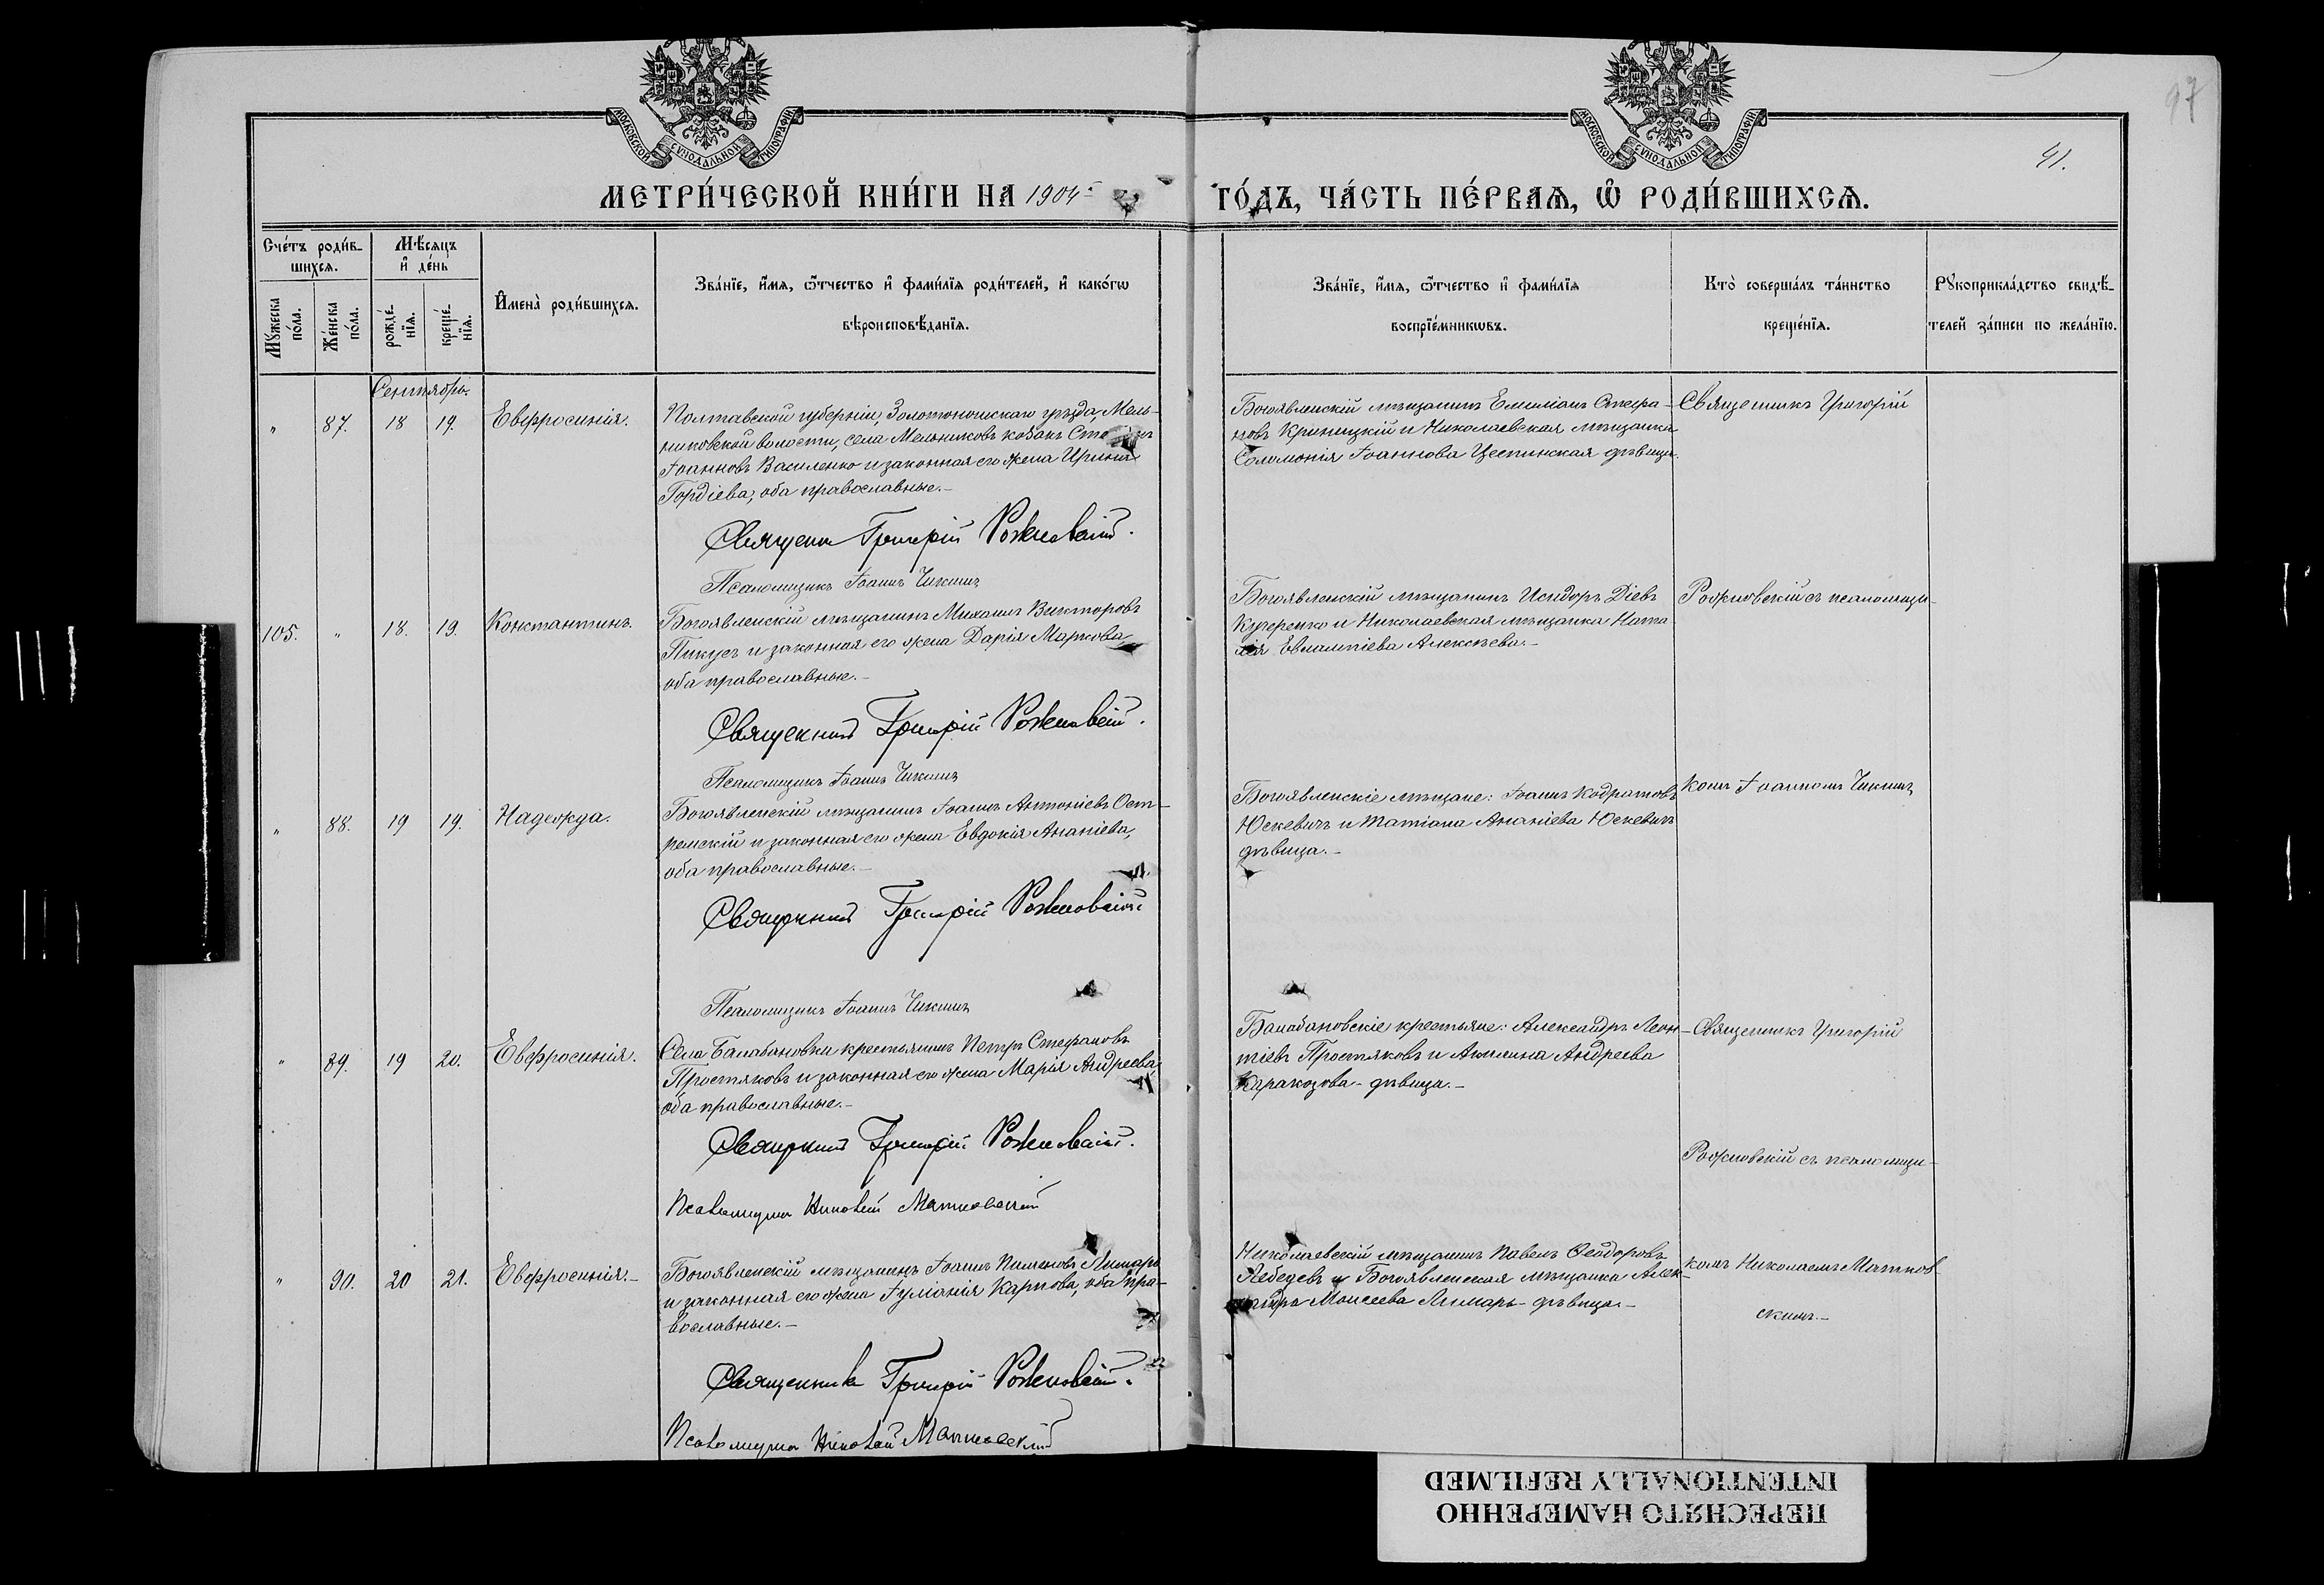 97
41.
МОСКОВСКОЙ СѴНОДАЛЬНОЙ ТИПОГРАФІИ
МОСКОВСКОЙ СѴНОДАЛЬНОЙ ТИПОГРАФІИ
МЕТРИ́ЧЕСКОЙ КНИ́ГИ НА 1904 ГО́ДЪ, ЧА́СТЬ ПЕ́РВАѦ, Ѡ РОДИ́ВШИХСѦ.
Сче́тъ роди́в-
шихсѧ.
Мѣ́сяцъ
и҆ де́нь
Мꙋ́жеска
по́ла.
Же́нска
по́ла.
рожде́-
нїѧ.
креще́-
нїѧ.
И҆мена̀ роди́вшихсѧ.
Зва́нїе, и҆́мѧ, ѻ҆́тчество и҆ фами́лїѧ роди́телей, и҆ како́гѡ
вѣроисповѣ́данїѧ.
Зва́нїе, и҆́мѧ, ѻ҆́тчество и҆ фами́лїѧ
воспрїе́мникѡвъ.
Кто̀ соверша́лъ та́инство
креще́нїѧ.
Рꙋкоприкла́дство свидѣ́-
телей за́писи по жела́нїю.
Сентябрь.
" 87. 18 19. Евфросинія.
Полтавской губерніи, Золотоношскаго уѣзда, Мель-
никовской волости, села Мельниковъ козакъ
Іоанновъ Василенко и законная его жена Ирина
Гордіева, оба православные.-
Священ Григорій Рожновскій.
Псаломщикъ Іоаннъ Чикишъ
Богоявленскій мѣщанинъ Емиліанъ Стефа-
новъ Криницкій и Николаевская мѣщанка
Соломонія Іоаннова Цеспинская дѣвица.
Священникъ Григорій
105. " 18. 19. Константинъ.
Богоявленскій мѣщанинъ Михаилъ Викторовъ
Пикусъ и законная его жена Дарія Маркова,
оба православные.-
Священникъ Григорій Рожновскій.
Псаломщикъ Іоаннъ Чикишъ
Богоявленскій мѣщанинъ Исидоръ Діевъ
Кучеренко и Николаевская мѣщанка Ната-
лія Евлампіева Алексѣева.-
Рожновскій съ псаломщи-
" 88. 19 19. Надежда.
Богоявленскій мѣщанинъ Іоаннъ Антоніевъ Ост-
ремскій и законная его жена Евдокія Ананіева,
оба православные.-
Священникъ Григорій Рожновскій
Псаломщикъ Іоаннъ Чикишъ
Богоявленскіе мѣщане: Іоаннъ Кодратовъ
Юскевичъ и Татіана Ананіева Юскевичъ
дѣвица.-
комъ Іоанномъ Чикишъ
" 89. 19 20. Евфросинія.
Села Балабановки крестьянинъ Петръ Стефановъ
Простяковъ и законная его жена Марія Андреева,
оба православные.-
Священникъ Григорій Рожновскій.
Псаломщикъ Николай Матковскій
Балабановскіе крестьяне: Александръ Леон-
тіевъ Простяковъ и Акилина Андреева
Каракозова - дѣвица.-
Священникъ Григорій
Рожновскій съ псаломщи-
" 90. 20 21. Евфросинія.-
Богоявленскій мѣщанинъ Іоаннъ Пименовъ Лимарь
и законная его жена Іуліанія Карпова, оба пра-
вославные.-
Священникъ Григорій Рожновскій.
Псаломщикъ Николай Матковскій
Николаевскій мѣщанинъ Павелъ Ѳеодоровъ
Лебедевъ и Богоявленская мѣщанка Алек-
сандра Моисеева Лимарь - дѣвица.-
комъ Николаемъ Матков-
скимъ.-
ПЕРЕСНЯТО НАМЕРЕННО
INTENTIONALLY REFILMED